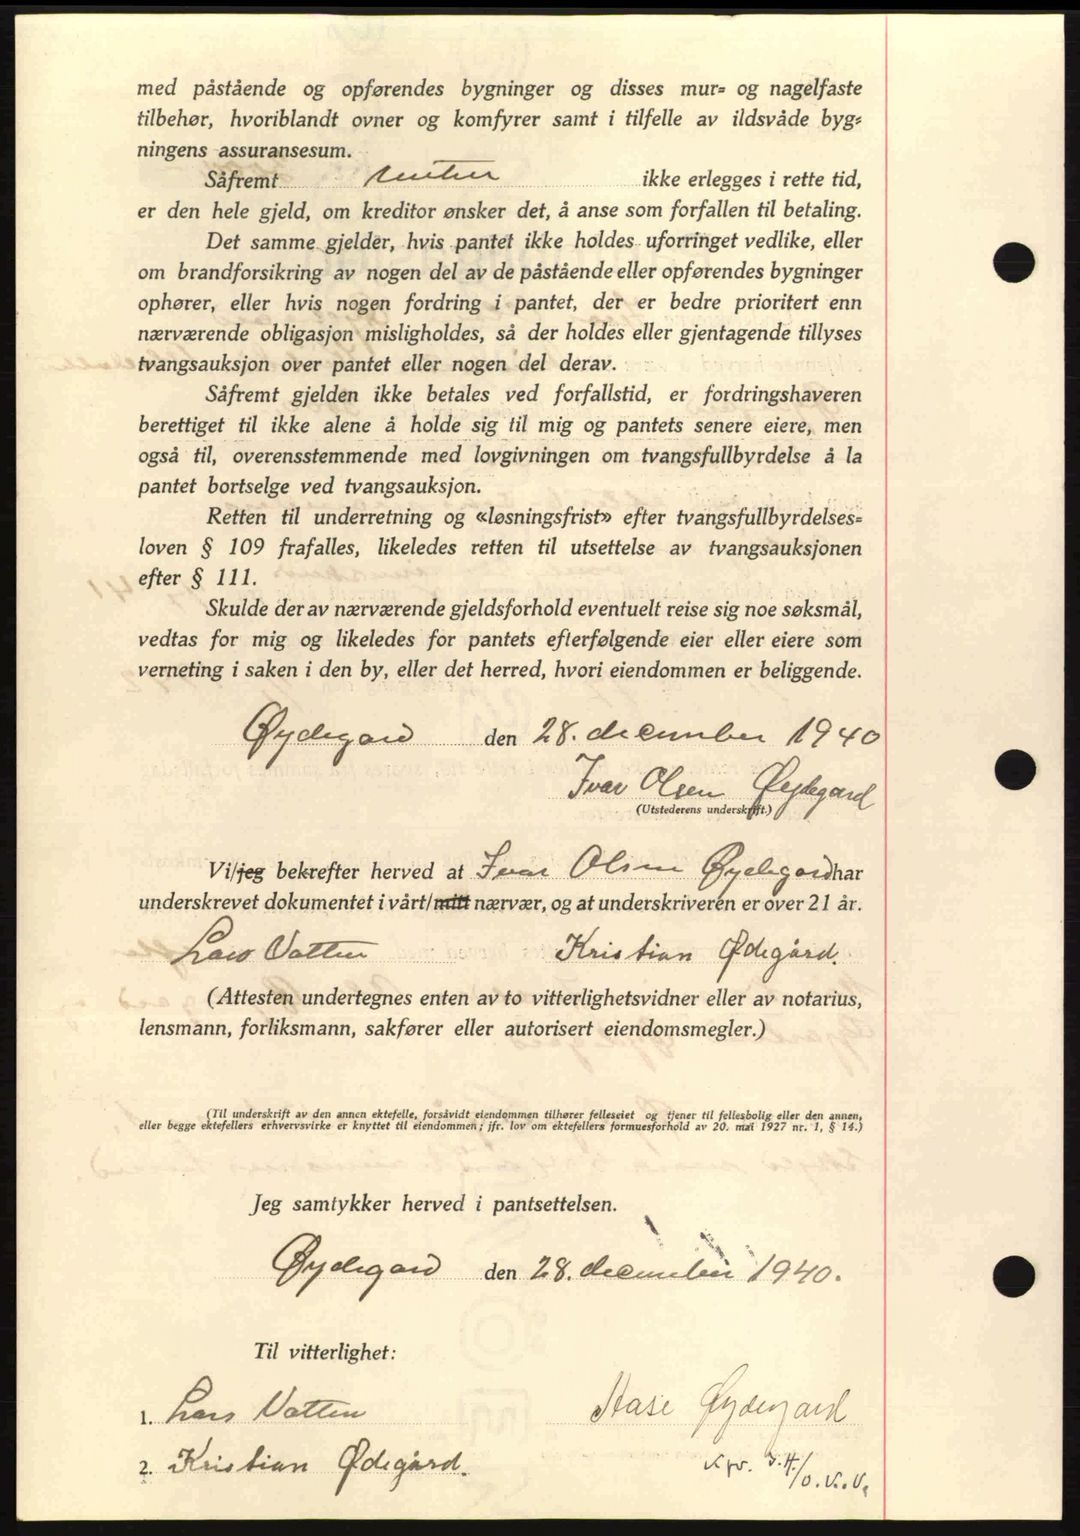 med påstående og opførendes bygninger og disses mur= og nagelfaste
tilbehør, hvoriblandt ovner og komfyrer samt i tilfelle av ildsvåde byg=
ningens assuransesum.
Såfremt renten ikke erlegges i rette tid,
er den hele gjeld, om kreditor ønsker det, å anse som forfallen til betaling.
Det samme gjelder, hvis pantet ikke holdes uforringet vedlike, eller
om brandforsikring av nogen del av de påstående eller opførendes bygninger
ophører, eller hvis nogen fordring i pantet, der er bedre prioritert enn
nærværende obligasjon misligholdes, så der holdes eller gjentagende tillyses
tvangsauksjon over pantet eller nogen del derav.
Såfremt gjelden ikke betales ved forfallstid, er fordringshaveren
berettiget til ikke alene å holde sig til mig og pantets senere eiere, men
også til, overensstemmende med lovgivningen om tvangsfullbyrdelse å la
pantet bortselge ved tvangsauksjon.
Retten til underretning og «løsningsfrist» efter tvangsfullbyrdelses=
loven § 109 frafalles, likeledes retten til utsettelse av tvangsauksjonen
efter § 111.
Skulde der av nærværende gjeldsforhold eventuelt reise sig noe søksmål,
vedtas for mig og likeledes for pantets efterfølgende eier eller eiere som
verneting i saken i den by, eller det herred, hvori eiendommen er beliggende.
Øydegard den 28. december 1940
Ivar Olsen Øydegard
(Utstederens underskrift.)
Vi/jeg bekrefter herved at Ivar Olsen Øydegard har
underskrevet dokumentet i vårt/mitt nærvær, og at underskriveren er over 21 år.
Lars Vatten Kristian Ødegård.
(Attesten undertegnes enten av to vitterlighetsvidner eller av notarius,
lensmann, forliksmann, sakfører eller autorisert eiendomsmegler.)
(Til underskrift av den annen ektefelle, forsåvidt eiendommen tilhører felleseiet og tjener til fellesbolig eller den annen,
eller begge ektefellers erhvervsvirke er knyttet til eiendommen; jfr. lov om ektefellers formuesforhold av 20. mai 1927 nr. 1, § 14.)
Jeg samtykker herved i pantsettelsen.
Øydegard den 28. december 1940.
Til vitterlighet:
1. Lars Vatten Aase Øydegard
2. Kristian Ødegård.